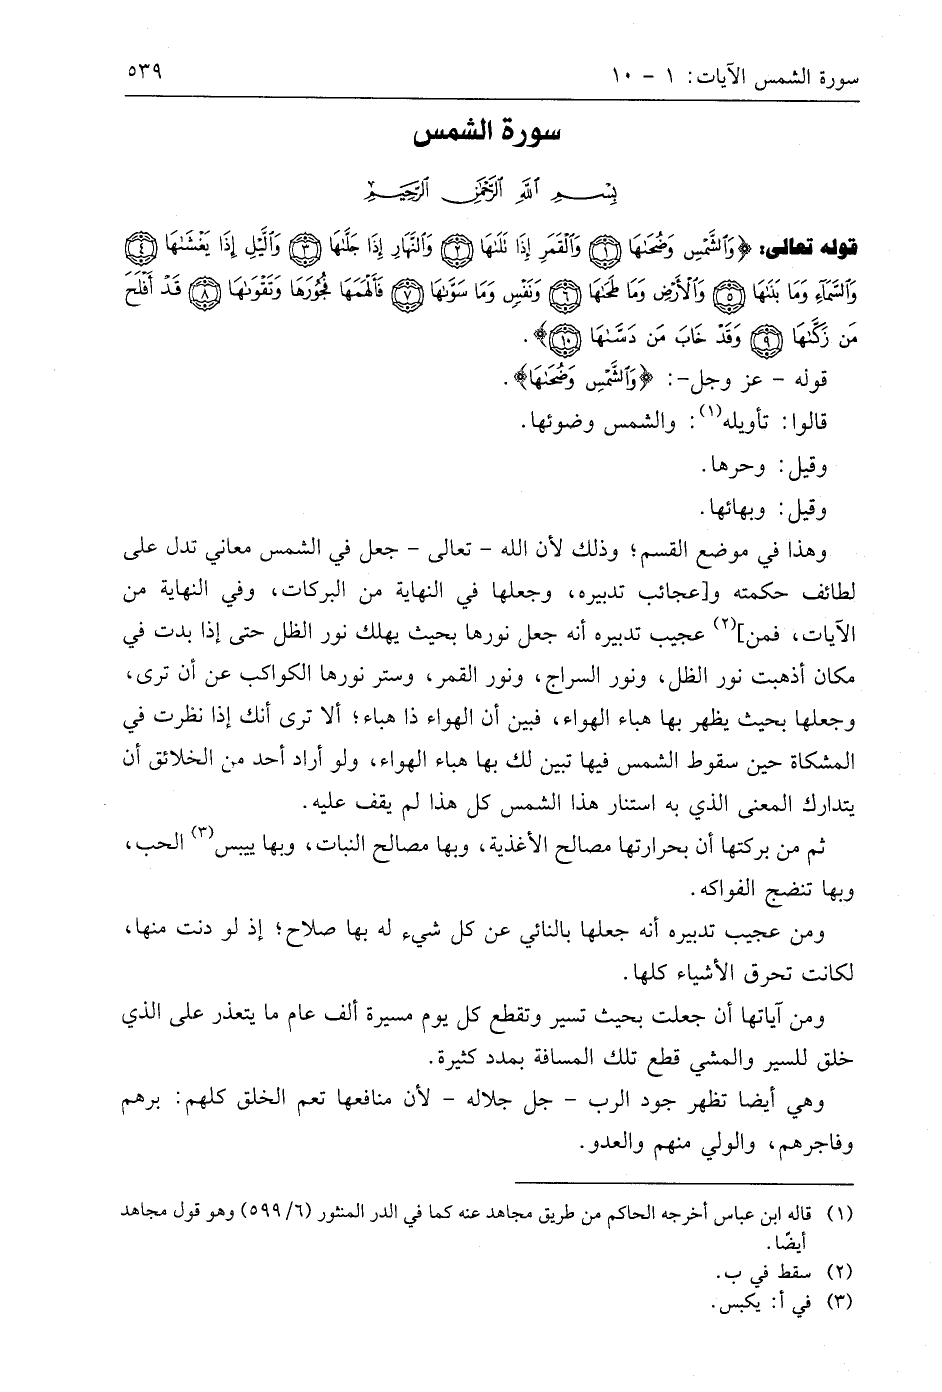 سورة الشمس الآيات: ١ - ١٠
٥٣٩
سورة الشمس
بِسْمِ ٱللَّهِ ٱلرَّحْمَٰنِ ٱلرَّحِيمِ
قوله تعالى: ﴿وَٱلشَّمْسِ وَضُحَىٰهَا ﴿١﴾ وَٱلْقَمَرِ إِذَا تَلَىٰهَا ﴿٢﴾ وَٱلنَّهَارِ إِذَا جَلَّىٰهَا ﴿٣﴾ وَٱلَّيْلِ إِذَا يَغْشَىٰهَا ﴿٤﴾
وَٱلسَّمَآءِ وَمَا بَنَىٰهَا ﴿٥﴾ وَٱلْأَرْضِ وَمَا طَحَىٰهَا ﴿٦﴾ وَنَفْسٍ وَمَا سَوَّىٰهَا ﴿٧﴾ فَأَلْهَمَهَا فُجُورَهَا وَتَقْوَىٰهَا ﴿٨﴾ قَدْ أَفْلَحَ
مَن زَكَّىٰهَا ﴿٩﴾ وَقَدْ خَابَ مَن دَسَّىٰهَا ﴿١٠﴾﴾.
قوله - عز وجل-: ﴿وَٱلشَّمْسِ وَضُحَىٰهَا﴾.
قالوا: تأويله(١): والشمس وضوئها.
وقيل: وحرها.
وقيل: وبهائها.
وهذا في موضع القسم؛ وذلك لأن الله - تعالى - جعل في الشمس معاني تدل على
لطائف حكمته و[عجائب تدبيره، وجعلها في النهاية من البركات، وفي النهاية من
الآيات، فمن](٢) عجيب تدبيره أنه جعل نورها بحيث يهلك نور الظل حتى إذا بدت في
مكان أذهبت نور الظل، ونور السراج، ونور القمر، وستر نورها الكواكب عن أن ترى،
وجعلها بحيث يظهر بها هباء الهواء، فبين أن الهواء ذا هباء؛ ألا ترى أنك إذا نظرت في
المشكاة حين سقوط الشمس فيها تبين لك بها هباء الهواء، ولو أراد أحد من الخلائق أن
يتدارك المعنى الذي به استنار هذا الشمس كل هذا لم يقف عليه.
ثم من بركتها أن بحرارتها مصالح الأغذية، وبها مصالح النبات، وبها ييبس(٣) الحب،
وبها تنضج الفواكه.
ومن عجيب تدبيره أنه جعلها بالنائي عن كل شيء له بها صلاح؛ إذ لو دنت منها،
لكانت تحرق الأشياء كلها.
ومن آياتها أن جعلت بحيث تسير وتقطع كل يوم مسيرة ألف عام ما يتعذر على الذي
خلق للسير والمشي قطع تلك المسافة بمدد كثيرة.
وهي أيضا تظهر جود الرب - جل جلاله - لأن منافعها تعم الخلق كلهم: برهم
وفاجرهم، والولي منهم والعدو.
(١) قاله ابن عباس أخرجه الحاكم من طريق مجاهد عنه كما في الدر المنثور (٥٩٩/٦) وهو قول مجاهد
أيضًا.
(٢) سقط في ب.
(٣) في أ: يكبس.